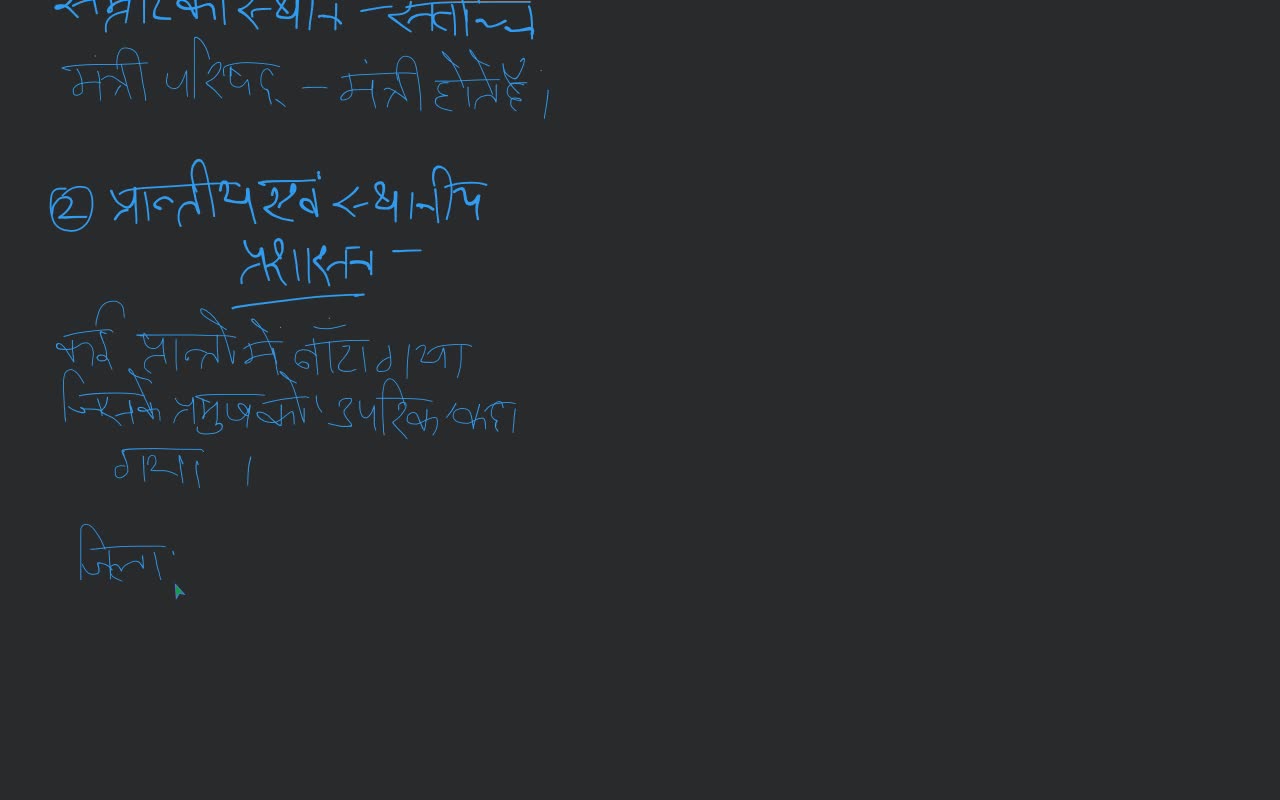 सम्राट का स्थान – सर्वोच्च
मंत्री परिषद् – मंत्री होते हैं।
② प्रान्तीय एवं स्थानीय
प्रशासन –
कई प्रान्तों में बाँटा गया
जिसके प्रमुख को 'उपरिक' कहा
गया ।
जिला